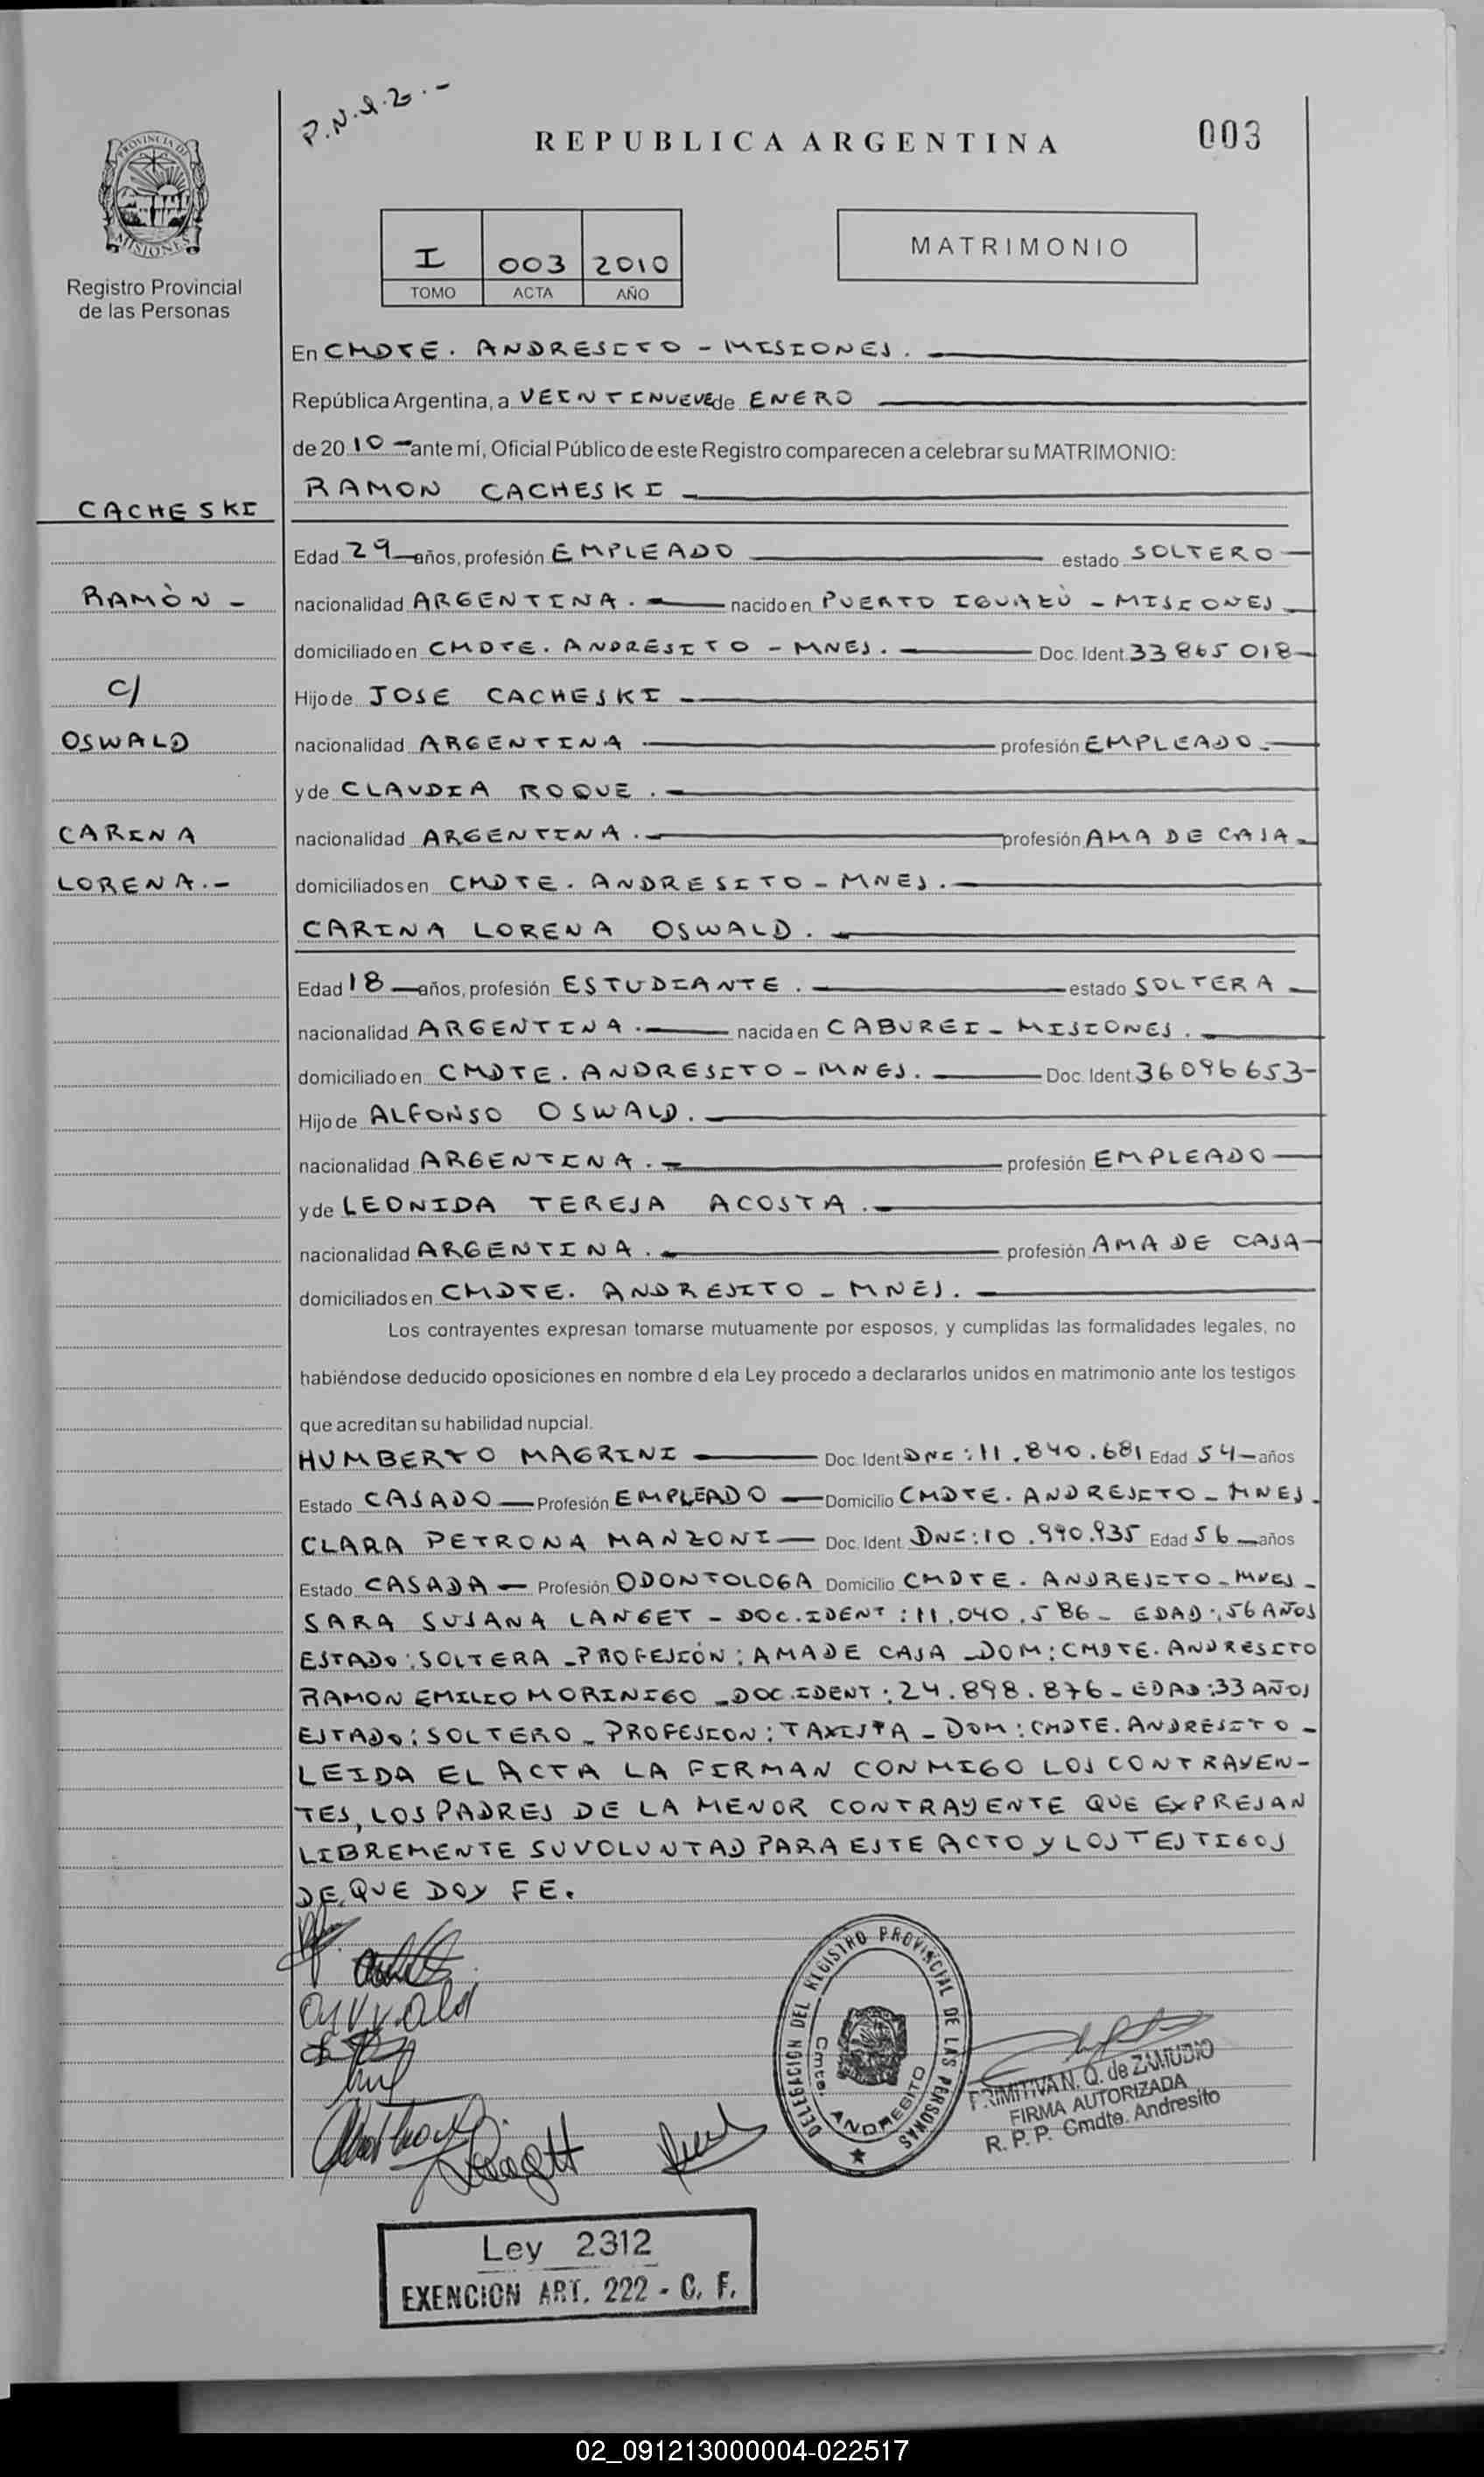 P.N.Q.20.-
REPUBLICA ARGENTINA
003
PROVINCIA DE MISIONES
Registro Provincial
de las Personas
I 003 2010
TOMO ACTA AÑO
MATRIMONIO
En CMDTE. ANDRESITO - MISIONES.
República Argentina, a VEINTINUEVE de ENERO
de 2010 ante mí, Oficial Público de este Registro comparecen a celebrar su MATRIMONIO:
RAMON CACHESKI
CACHESKI
Edad 29 años, profesión EMPLEADO estado SOLTERO
RAMÒN -
nacionalidad ARGENTINA. nacido en PUERTO IGUAZÙ - MISIONES
domiciliado en CMDTE. ANDRESITO - MNES. Doc. Ident. 33865018
C/
Hijo de JOSE CACHESKI
OSWALD
nacionalidad ARGENTINA profesión EMPLEADO.
y de CLAUDIA ROQUE.
CARINA
nacionalidad ARGENTINA. profesión AMA DE CASA
LORENA.-
domiciliados en CMDTE. ANDRESITO - MNES.
CARINA LORENA OSWALD.
Edad 18 años, profesión ESTUDIANTE. estado SOLTERA
nacionalidad ARGENTINA. nacida en CABUREI - MISIONES.
domiciliado en CMDTE. ANDRESITO - MNES. Doc. Ident. 36096653-
Hijo de ALFONSO OSWALD.
nacionalidad ARGENTINA. profesión EMPLEADO
y de LEONIDA TERESA ACOSTA.
nacionalidad ARGENTINA. profesión AMA DE CASA
domiciliados en CMDTE. ANDRESITO - MNES.
Los contrayentes expresan tomarse mutuamente por esposos, y cumplidas las formalidades legales, no
habiéndose deducido oposiciones en nombre d ela Ley procedo a declararlos unidos en matrimonio ante los testigos
que acreditan su habilidad nupcial.
HUMBERTO MAGRINI Doc. Ident DNI: 11.840.681 Edad 54 años
Estado CASADO Profesión EMPLEADO Domicilio CMDTE. ANDRESITO - MNES.
CLARA PETRONA MANZONI Doc. Ident. DNI: 10.990.935 Edad 56 años
Estado CASADA Profesión ODONTOLOGA Domicilio CMDTE. ANDRESITO - MNES -
SARA SUSANA LANGET - DOC. IDENT: 11.040.586 - EDAD: 56 AÑOS
ESTADO: SOLTERA - PROFESIÓN: AMA DE CASA - DOM: CMDTE. ANDRESITO
RAMON EMILIO MORINIGO - DOC. IDENT: 24.898.876 - EDAD: 33 AÑOS
ESTADO: SOLTERO - PROFESION: TAXISTA - DOM: CMDTE. ANDRESITO -
LEIDA EL ACTA LA FIRMAN CONMIGO LOS CONTRAYEN-
TES, LOS PADRES DE LA MENOR CONTRAYENTE QUE EXPRESAN
LIBREMENTE SU VOLUNTAD PARA ESTE ACTO Y LOS TESTIGOS
DE QUE DOY FE.
DELEGACION DEL REGISTRO PROVINCIAL DE LAS PERSONAS
Cmte. ANDRESITO
PRIMITIVA N. Q. de ZAMUDIO
FIRMA AUTORIZADA
R. P. P. Cmdte. Andresito
Ley 2312
EXENCION ART. 222 - C. F.
02_091213000004-022517